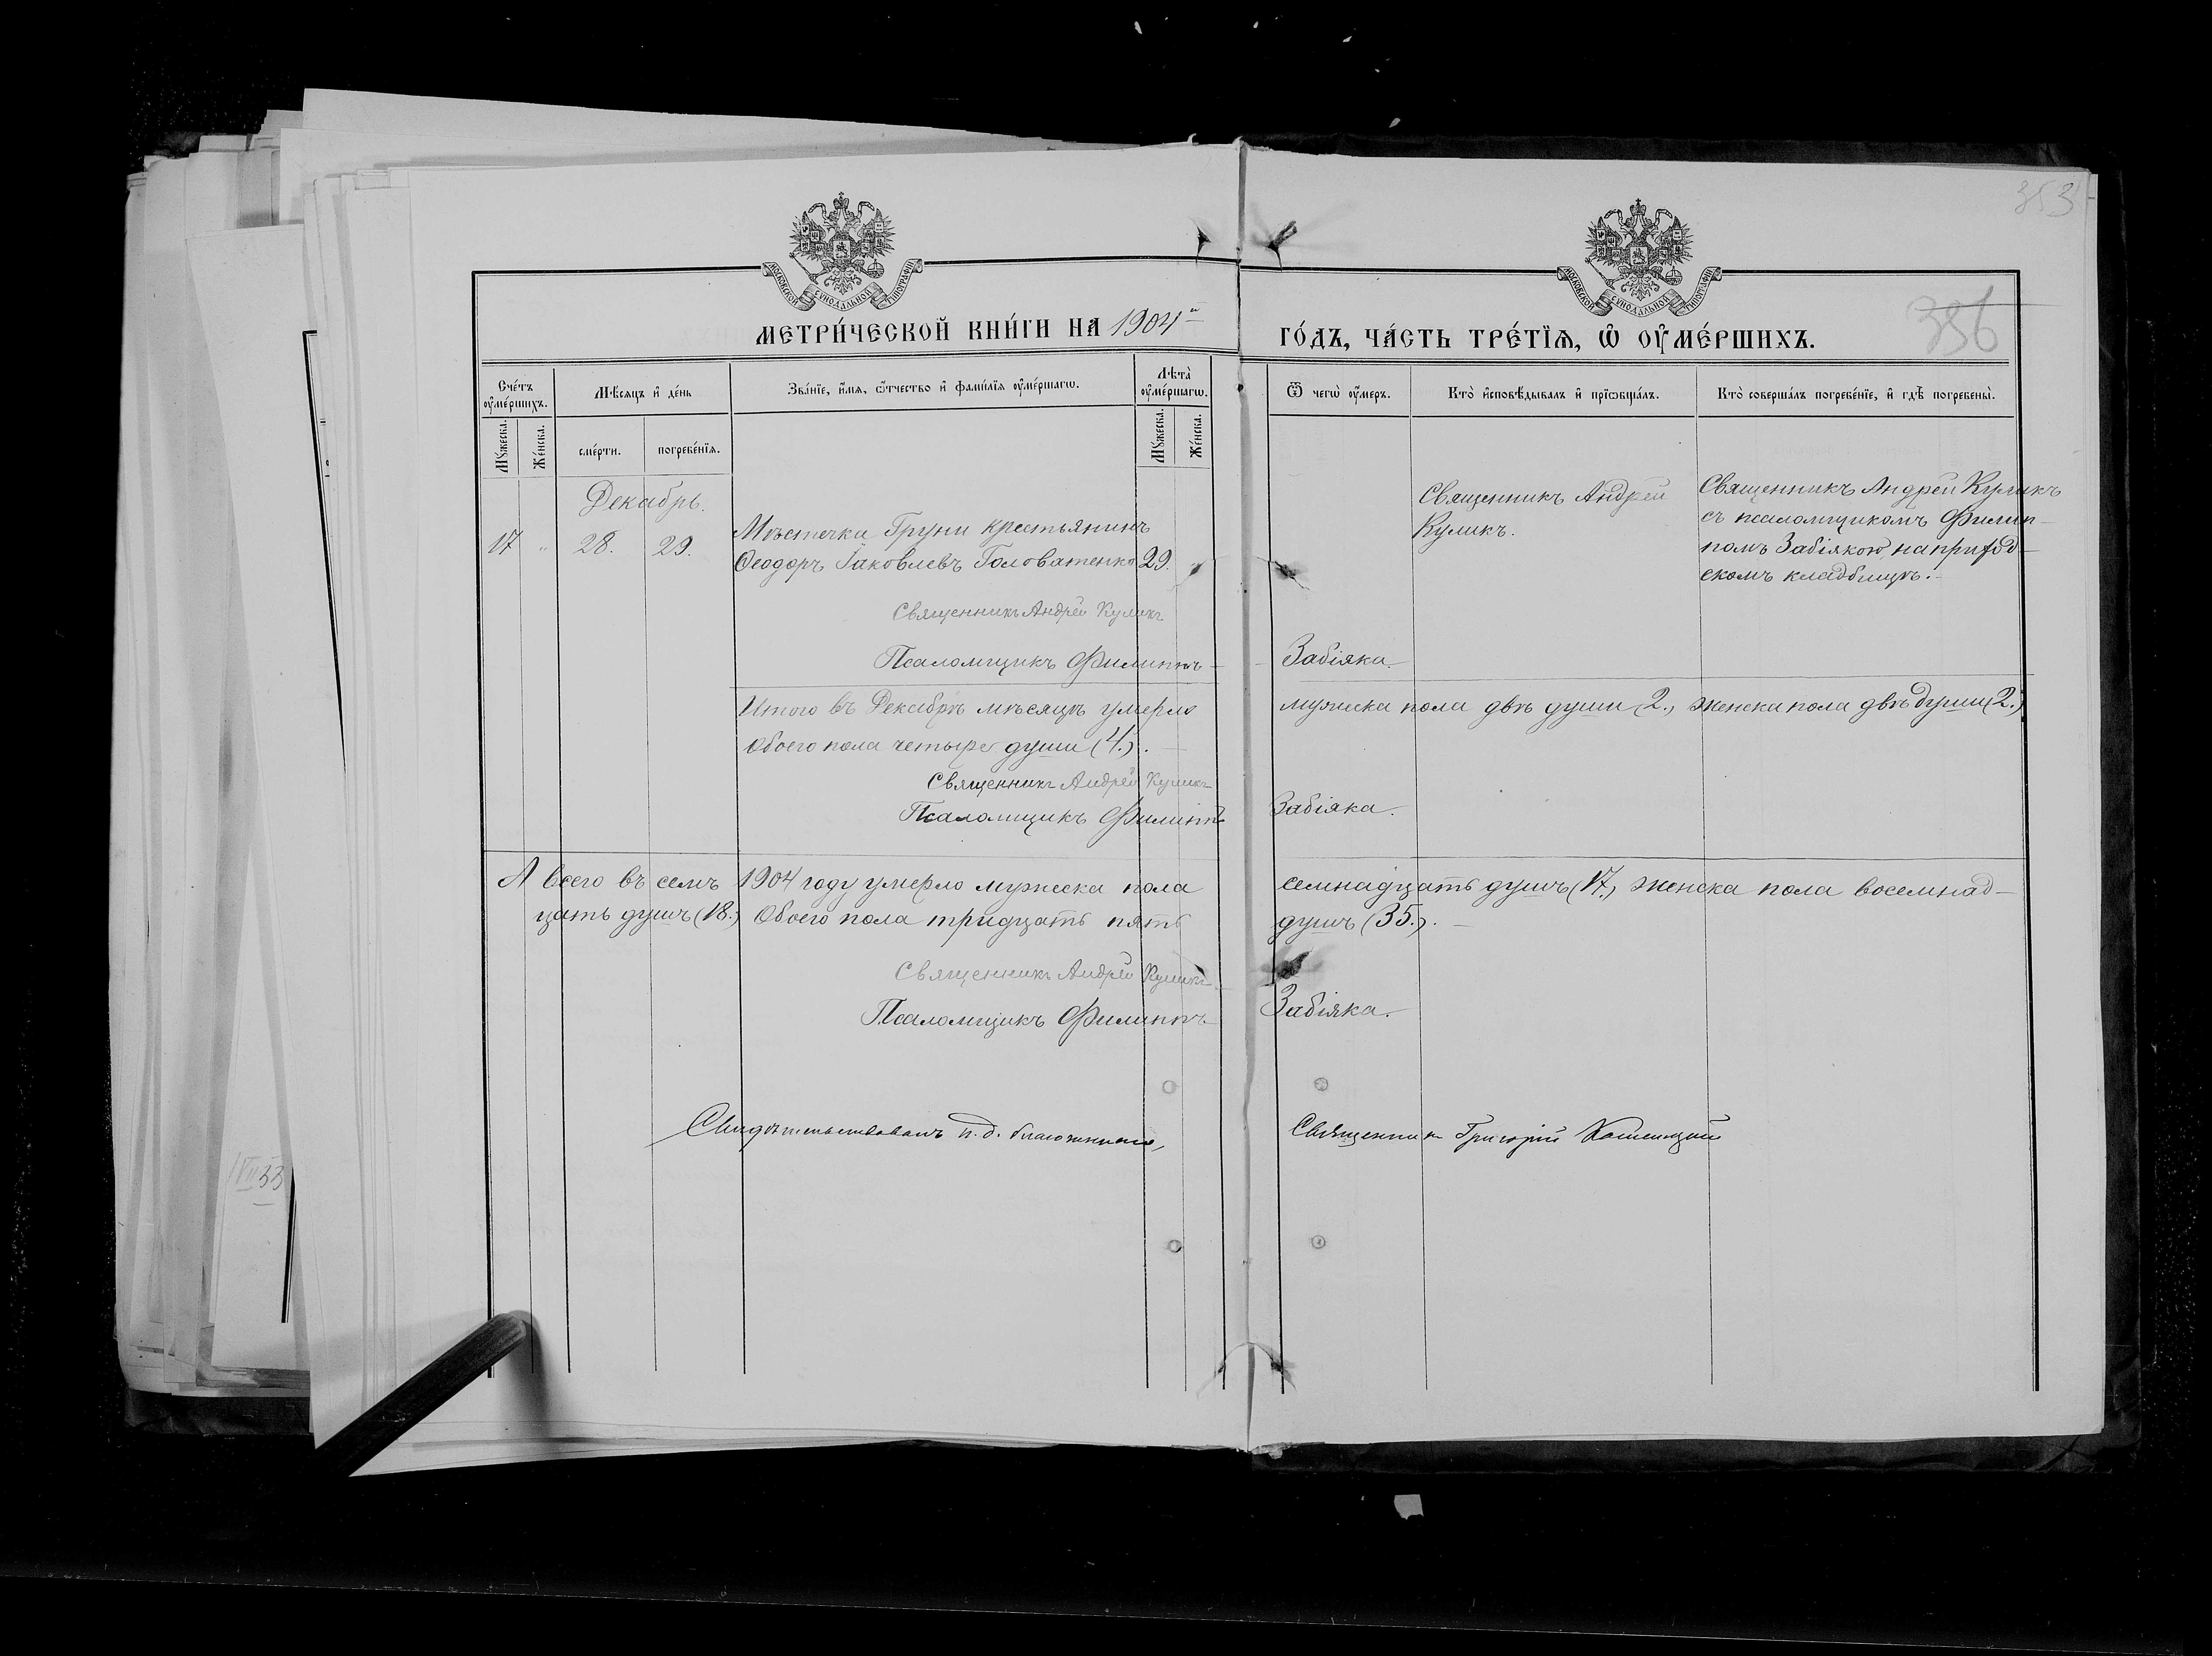 353
МОСКОВСКОЙ СѴНОДАЛЬНОЙ ТИПОГРАФІИ
МОСКОВСКОЙ СѴНОДАЛЬНОЙ ТИПОГРАФІИ
356
МЕТРИ́ЧЕСКОЙ КНИ́ГИ НА 1904й
ГО́ДЪ, ЧА́СТЬ ТРЕ́ТЇѦ, Ѡ҆ ОУ҆МЕ́РШИХЪ.
Сче́тъ оу҆ме́ршихъ.
Мѣ́сяцъ и҆ де́нь
Зва́нїе, и҆́мя, ѻ҆́тчество и҆ фами́лїя оу҆ме́ршагѡ.
Лѣта̀ оу҆ме́ршагѡ.
Ѿ чегѡ̀ оу҆́меръ.
Кто̀ и҆сповѣ́дывалъ и҆ прїѡбща́лъ.
Кто̀ соверша́лъ погребе́нїе, и҆ гдѣ̀ погребены̀.
Мꙋ́жеска.
Же́нска.
сме́рти.
погребе́нїя.
Мꙋ́жеска.
Же́нска.
Декабрь.
17 " 28. 29.
Мѣстечка Груни крестьянинъ
Ѳеодоръ Іаковлевъ Головатенко 29.
Священникъ Андрей
Куликъ.
Священникъ Андрей Куликъ
съ псаломщикомъ Филип-
помъ Забіякою на приход-
скомъ кладбищѣ.
Священникъ Андрей Куликъ
Псаломщикъ Филиппъ Забіяка.
Итого въ Декабрѣ мѣсяцѣ умерло мужеска пола двѣ души (2.), женска пола двѣ души (2.)
обоего пола четыре души (4.).
Священникъ Андрей Куликъ
Псаломщикъ Филиппъ Забіяка.
А всего въ семъ 1904 году умерло мужеска пола семнадцать душъ (17.), женска пола восемнад-
цать душъ (18.) Обоего пола тридцать пять душъ (35.).
Священникъ Андрей Куликъ
Псаломщикъ Филиппъ Забіяка.
Свидѣтельствовалъ и. д. благочиннаго, Священникъ Григорій
33